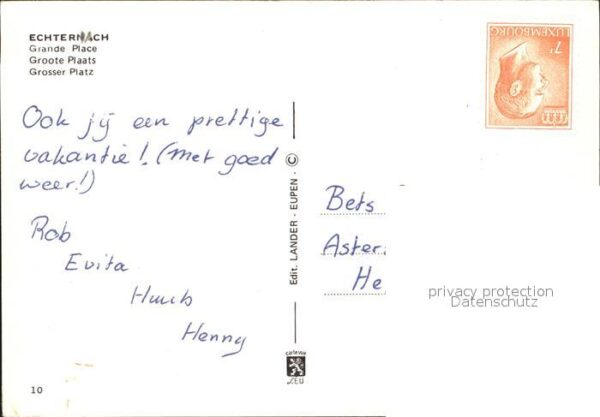 ECHTERNACH
Grande Place
Groote Plaats
Grosser Platz
7F
LUXEMBOURG
Ook jij een prettige
vakantie! (met goed
weer!)
Rob
Evita
Huub
Henny
Edit. LANDER - EUPEN - ©
Bets
Aster
He
privacy protection
Datenschutz
10